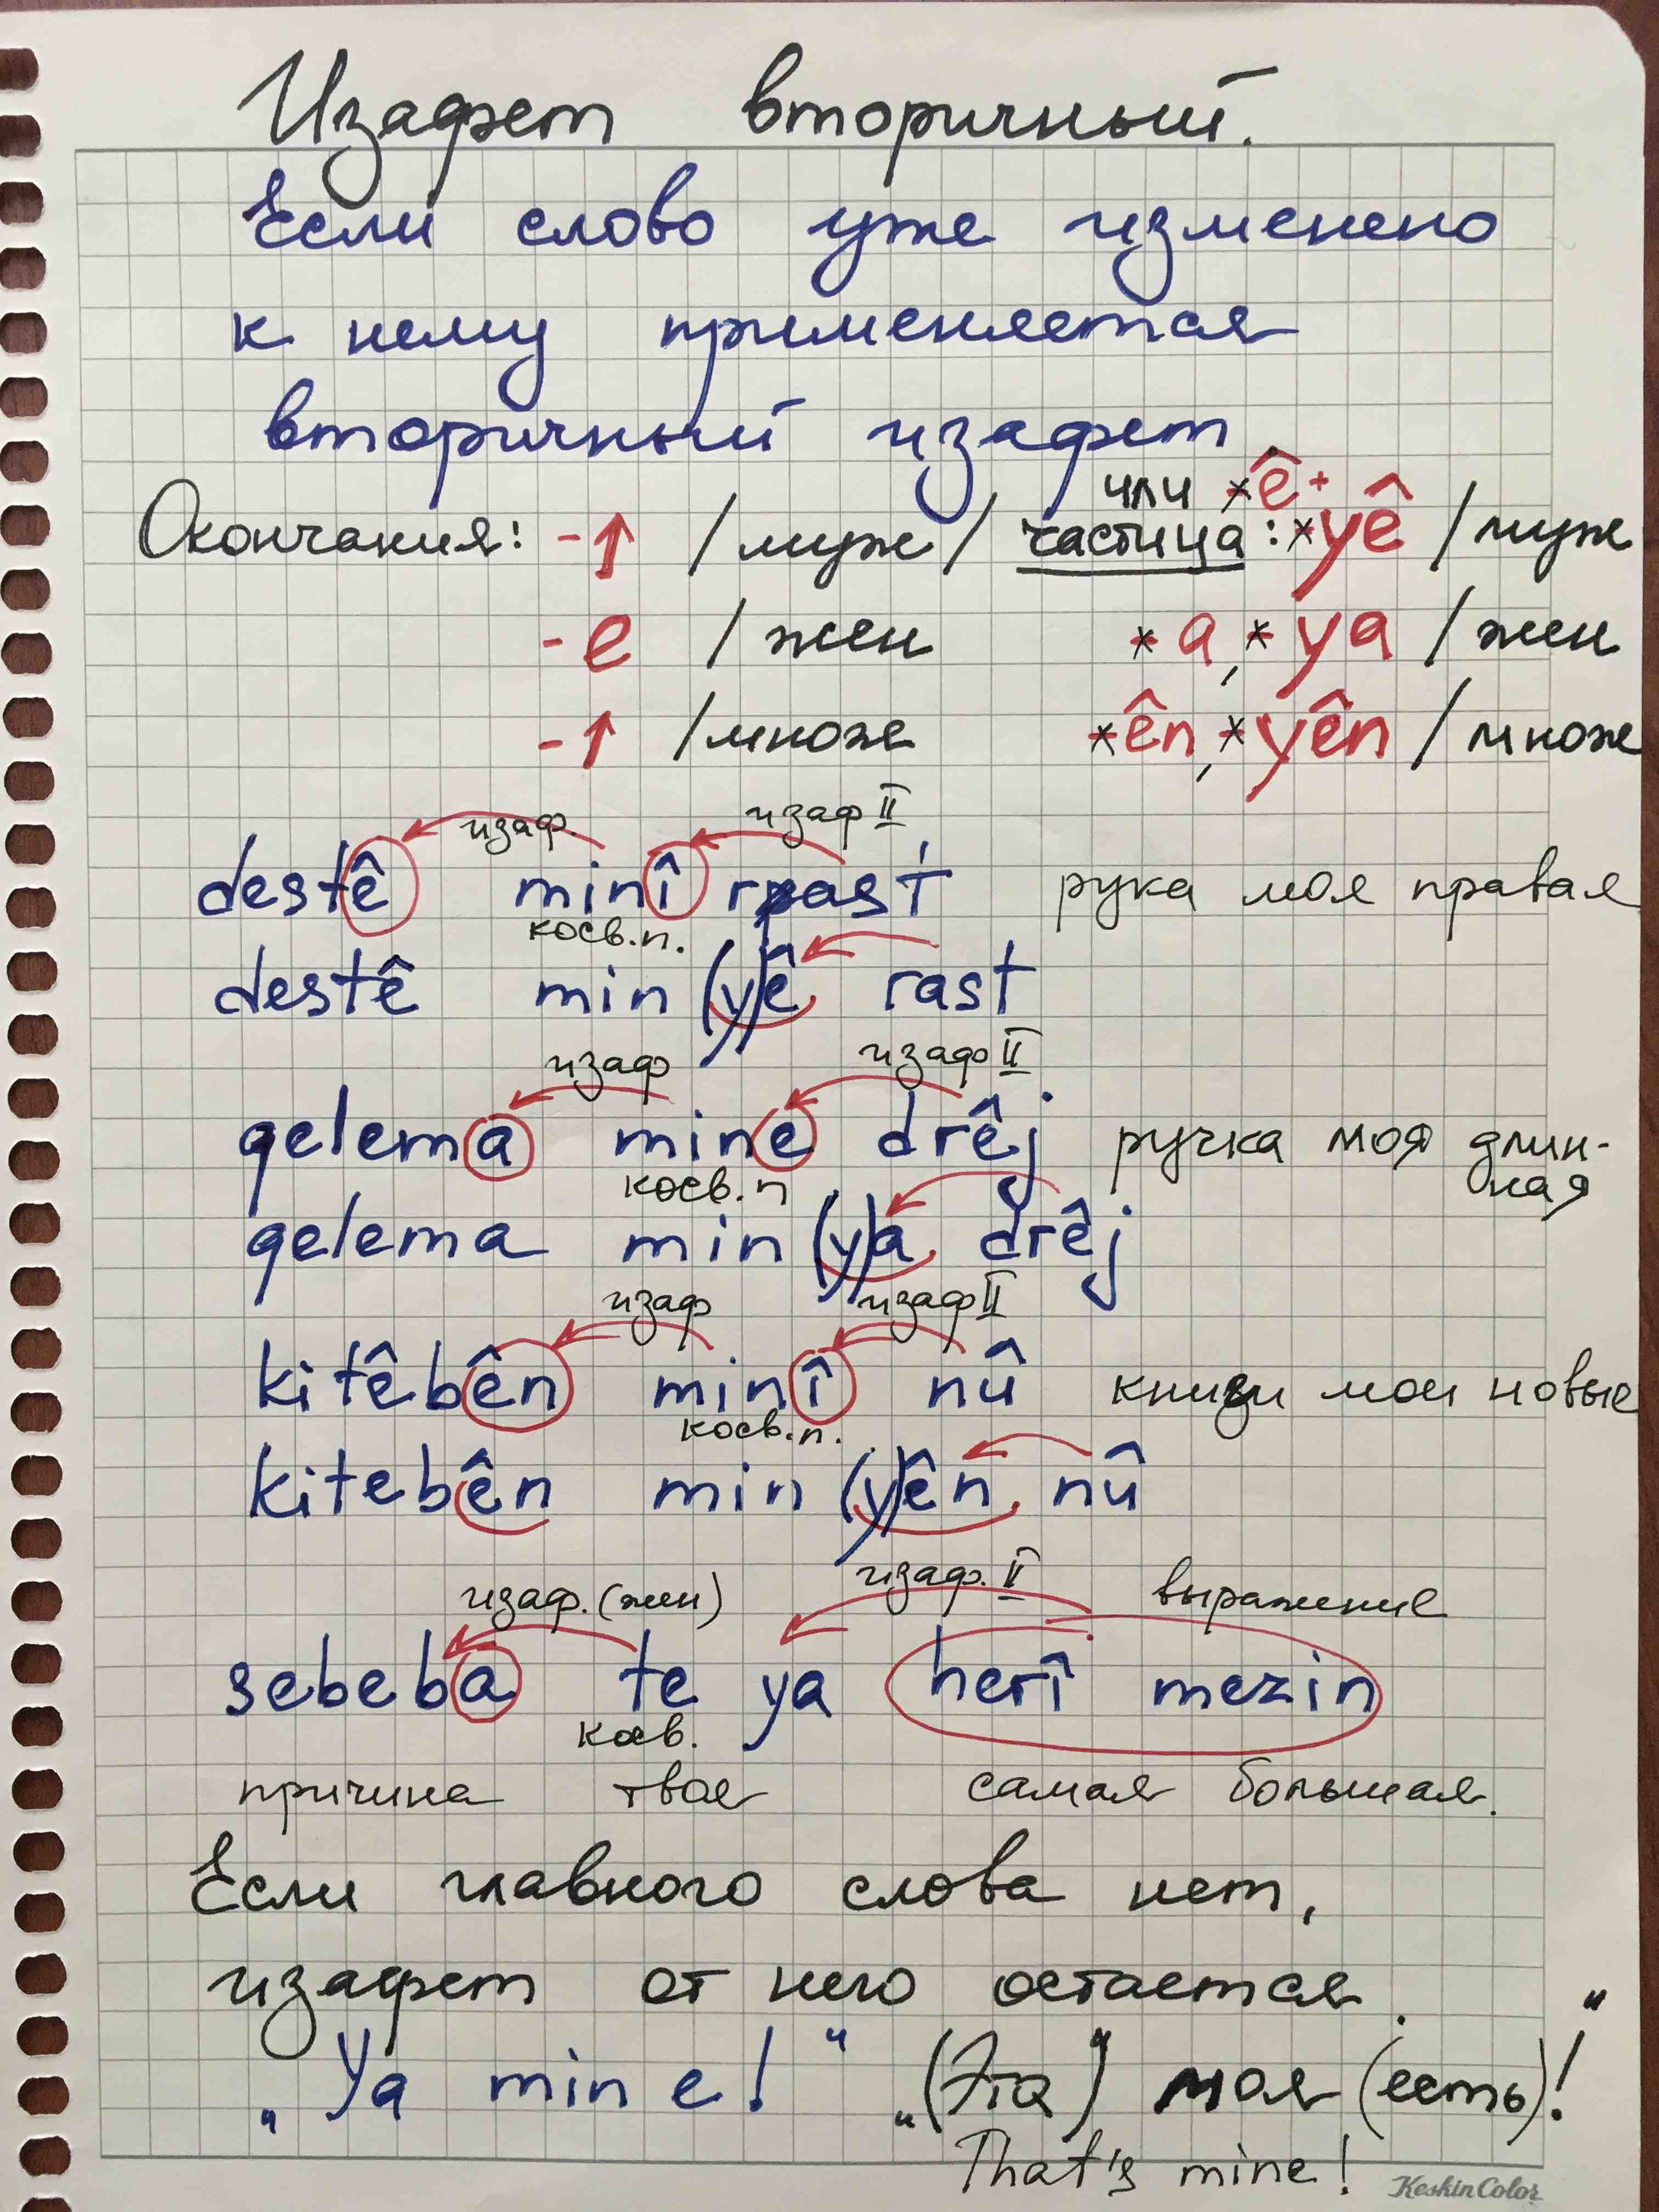 Изафет вторичный.
Если слово уже изменено
к нему применяется
вторичный изафет.
или *ê+
Окончания: -↑ /муж/ частица: *yê /муж
-e /жен *a, *ya /жен
-↑ /множе *ên, *yên /множе
изаф. изаф II
destê minî rast рука моя правая
косв.п.
destê min (y)ê rast
изаф изаф II
qelema mine drêj ручка моя длин-
косв.п ная
qelema min (y)a drêj
изаф изаф II
kitêbên minî nû книги мои новые
косв.п.
kitebên min (y)ên nû
изаф.(жен) изаф. II выражение
sebeba te ya herî mezin
косв.
причина твоя самая большая.
Если главного слова нет,
изафет от него остается.
„Ya min e!“ „(Эта) моя (есть)!“
That's mine!
KeskinColor